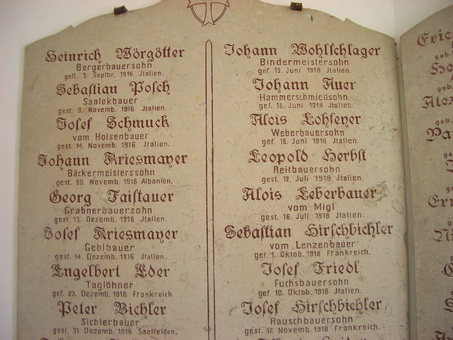 Heinrich Wörgötter
Bergerbauersohn
gef. 3. Septbr. 1916 Italien.
Sebastian Posch
Saalekbauer
gest. 8. Novemb. 1916 Italien.
Josef Schmuck
vom Hoisenbauer
gest. 14. Novemb. 1916 Italien.
Johann Kriesmayer
Bäckermeisterssohn
gest. 30. Novemb. 1916 Albanien.
Georg Faistauer
Grabnerbauersohn
gest. 13. Dezemb. 1916 Italien.
Josef Kriesmayer
Gehlbauer
gest. 14. Dezemb. 1916 Italien.
Engelbert Eder
Taglöhner
gef. 23. Dezemb. 1916 Frankreich
Peter Bichler
Sichlerbauer
gest. 31. Dezemb. 1916 Saalfelden.
Johann Wohlschlager
Bindermeistersohn
gef. 15. Juni 1918 Italien.
Johann Auer
Hammerschmiedsohn
gef. 16. Juni 1918 Italien.
Alois
Weberbauersohn
gef. 16. Juni 1918 Italien.
Leopold Herbst
Reitbauersohn
gest. 12. Juli 1918 Italien.
Alois Leberbauer
vom Migl
gest. 16. Juli 1918 Italien.
Sebastian Hirschbichler
vom Lenzenbauer
gef. 1. Oktob. 1918 Frankreich.
Josef Friedl
Fuchsbauersohn
gef. 10. Oktob. 1918 Italien.
Josef Hirschbichler
Rauschbauersohn
gest. 17. Novemb. 1918 Frankreich.